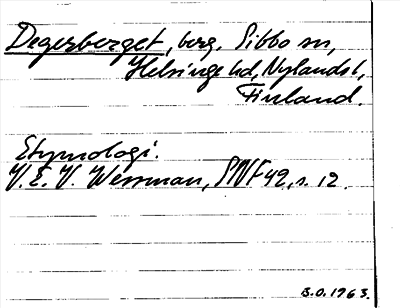 Degerberget, berg. Sibbo sn,
Helsinge hd, Nylands l,
Finland.
Etymologi.
V. E. V. Wessman, SNF 49, s. 12.
B.O. 1963.